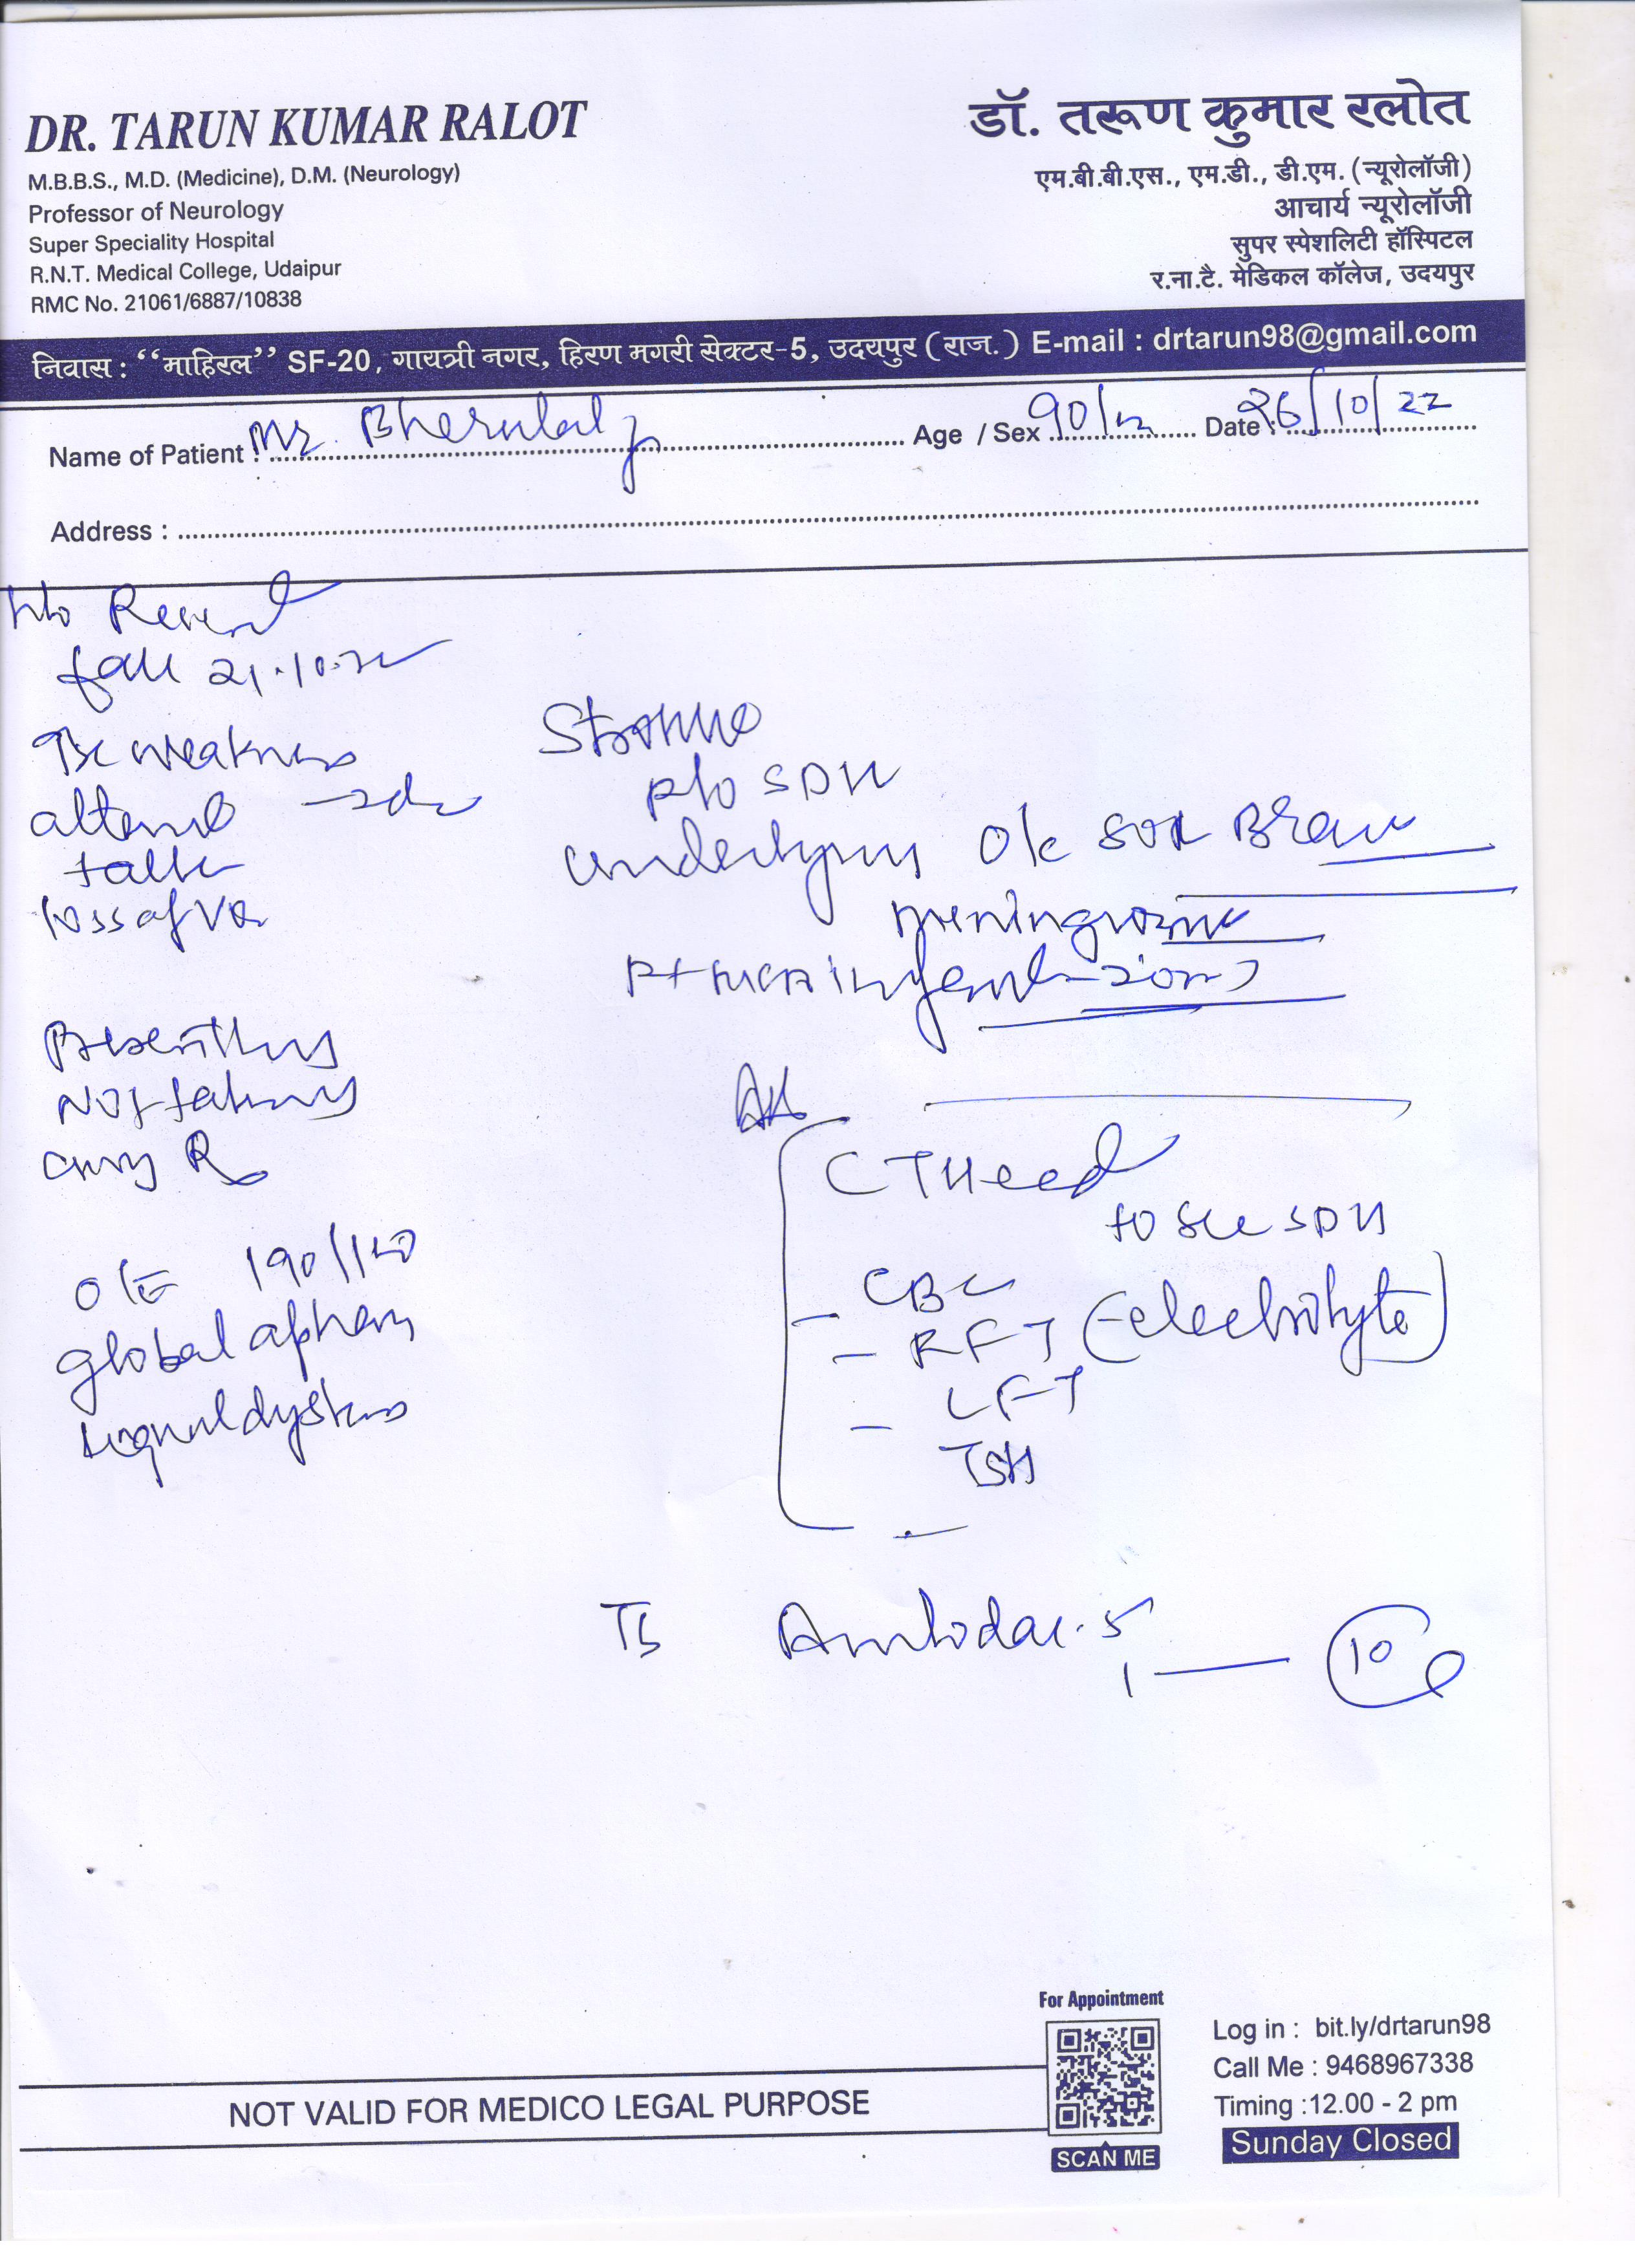 DR. TARUN KUMAR RALOT
M.B.B.S., M.D. (Medicine), D.M. (Neurology)
Professor of Neurology
Super Speciality Hospital
R.N.T. Medical College, Udaipur
RMC No. 21061/6887/10838
डॉ. तरूण कुमार रलोत
एम.बी.बी.एस., एम.डी., डी.एम. (न्यूरोलॉजी)
आचार्य न्यूरोलॉजी
सुपर स्पेशलिटी हॉस्पिटल
र.ना.टै. मेडिकल कॉलेज, उदयपुर
निवास : “माहिरल” SF-20, गायत्री नगर, हिरण मगरी सेक्टर-5, उदयपुर (राज.) E-mail : drtarun98@gmail.com
Name of Patient : Mr. Bherulal J Age / Sex 90/m Date : 26/10/22
Address :
h/o Recent
fall 21.10.22
weakness
altered
talk
loss of
Presently
Not taking
any R
O/E 190/110
global
P/o SDH
underlying O/c SOL Brain
meningioma
CT Head
to see SDH
- CBC
- RFT (-electrolyte)
LFT
- TSH
Amlodac-5
1 — 10
For Appointment
SCAN ME
Log in : bit.ly/drtarun98
Call Me : 9468967338
Timing :12.00 - 2 pm
Sunday Closed
NOT VALID FOR MEDICO LEGAL PURPOSE